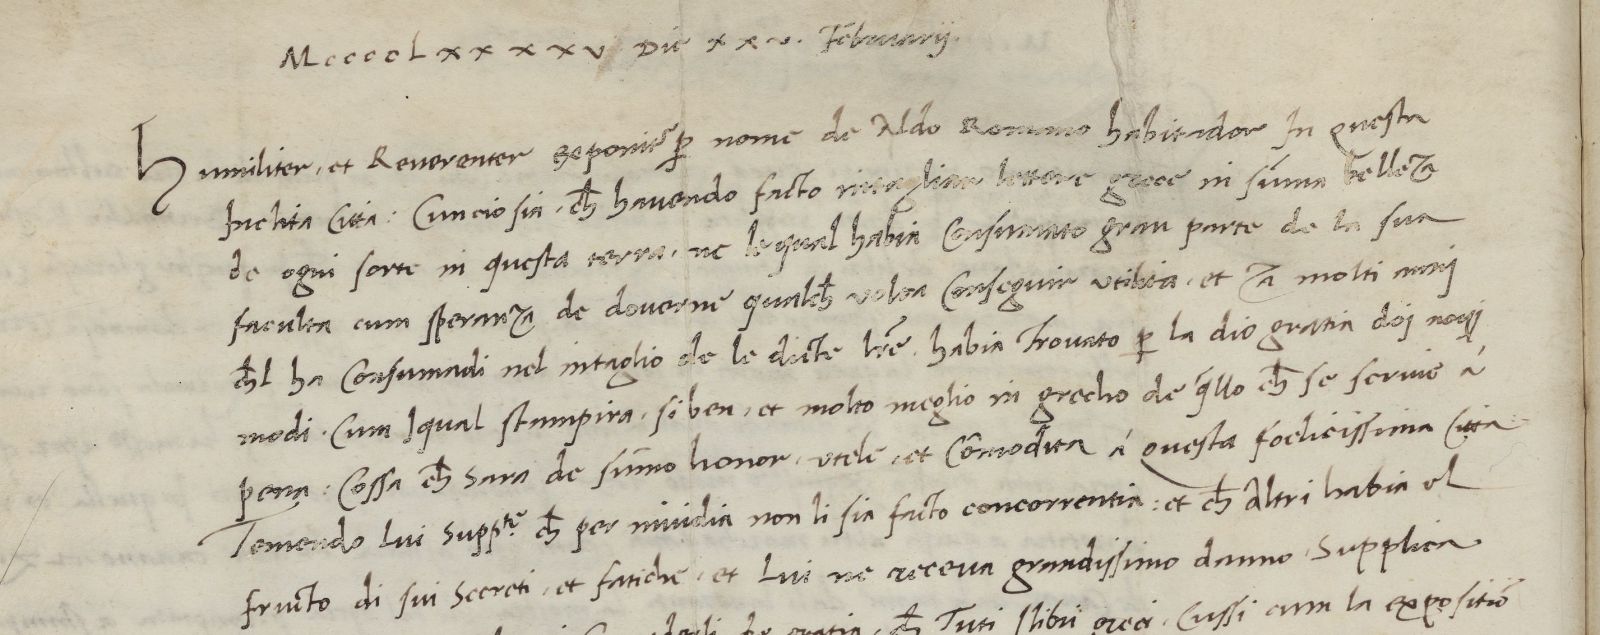 MccccLxxxxv Die xxv. Februarii.
Humiliter, et Reverenter exponit̃ ꝑ nome de Aldo Romano habitador In questa
Inclita Citta: Cuncio sia, ch̃ havendo facto intagliar lettere grece in sũma belleza
de ogni sorte in questa terra, ne le qual habia Consumato gran parte de la sua
faculta cum speranza de doverne qualch̃ volta Conseguir utilita, et za molti anni
ch̃l ha Consumadi nel intaglio de le dicte lr̃e, habia trovato ꝑ la dio gratia doi novi
modi, Cum I qual stampira, si ben, et molto meglio in grecho de q̃llo ch̃ se scrive á
pena: Cossa ch̃ sara de sũmo honor, utele, et Cõmodita á questa foelicissima Citta:
Temendo Lui Suppte ch̃ per invidia non li sia facto concorrentia: et ch̃ Altri habia el
fructo di sui secreti, et fatiche, et Lui ne receva grandissimo danno, Supplica
de gratia, ch̃ Tuti I libri greci, Cussi cum la expositiõ